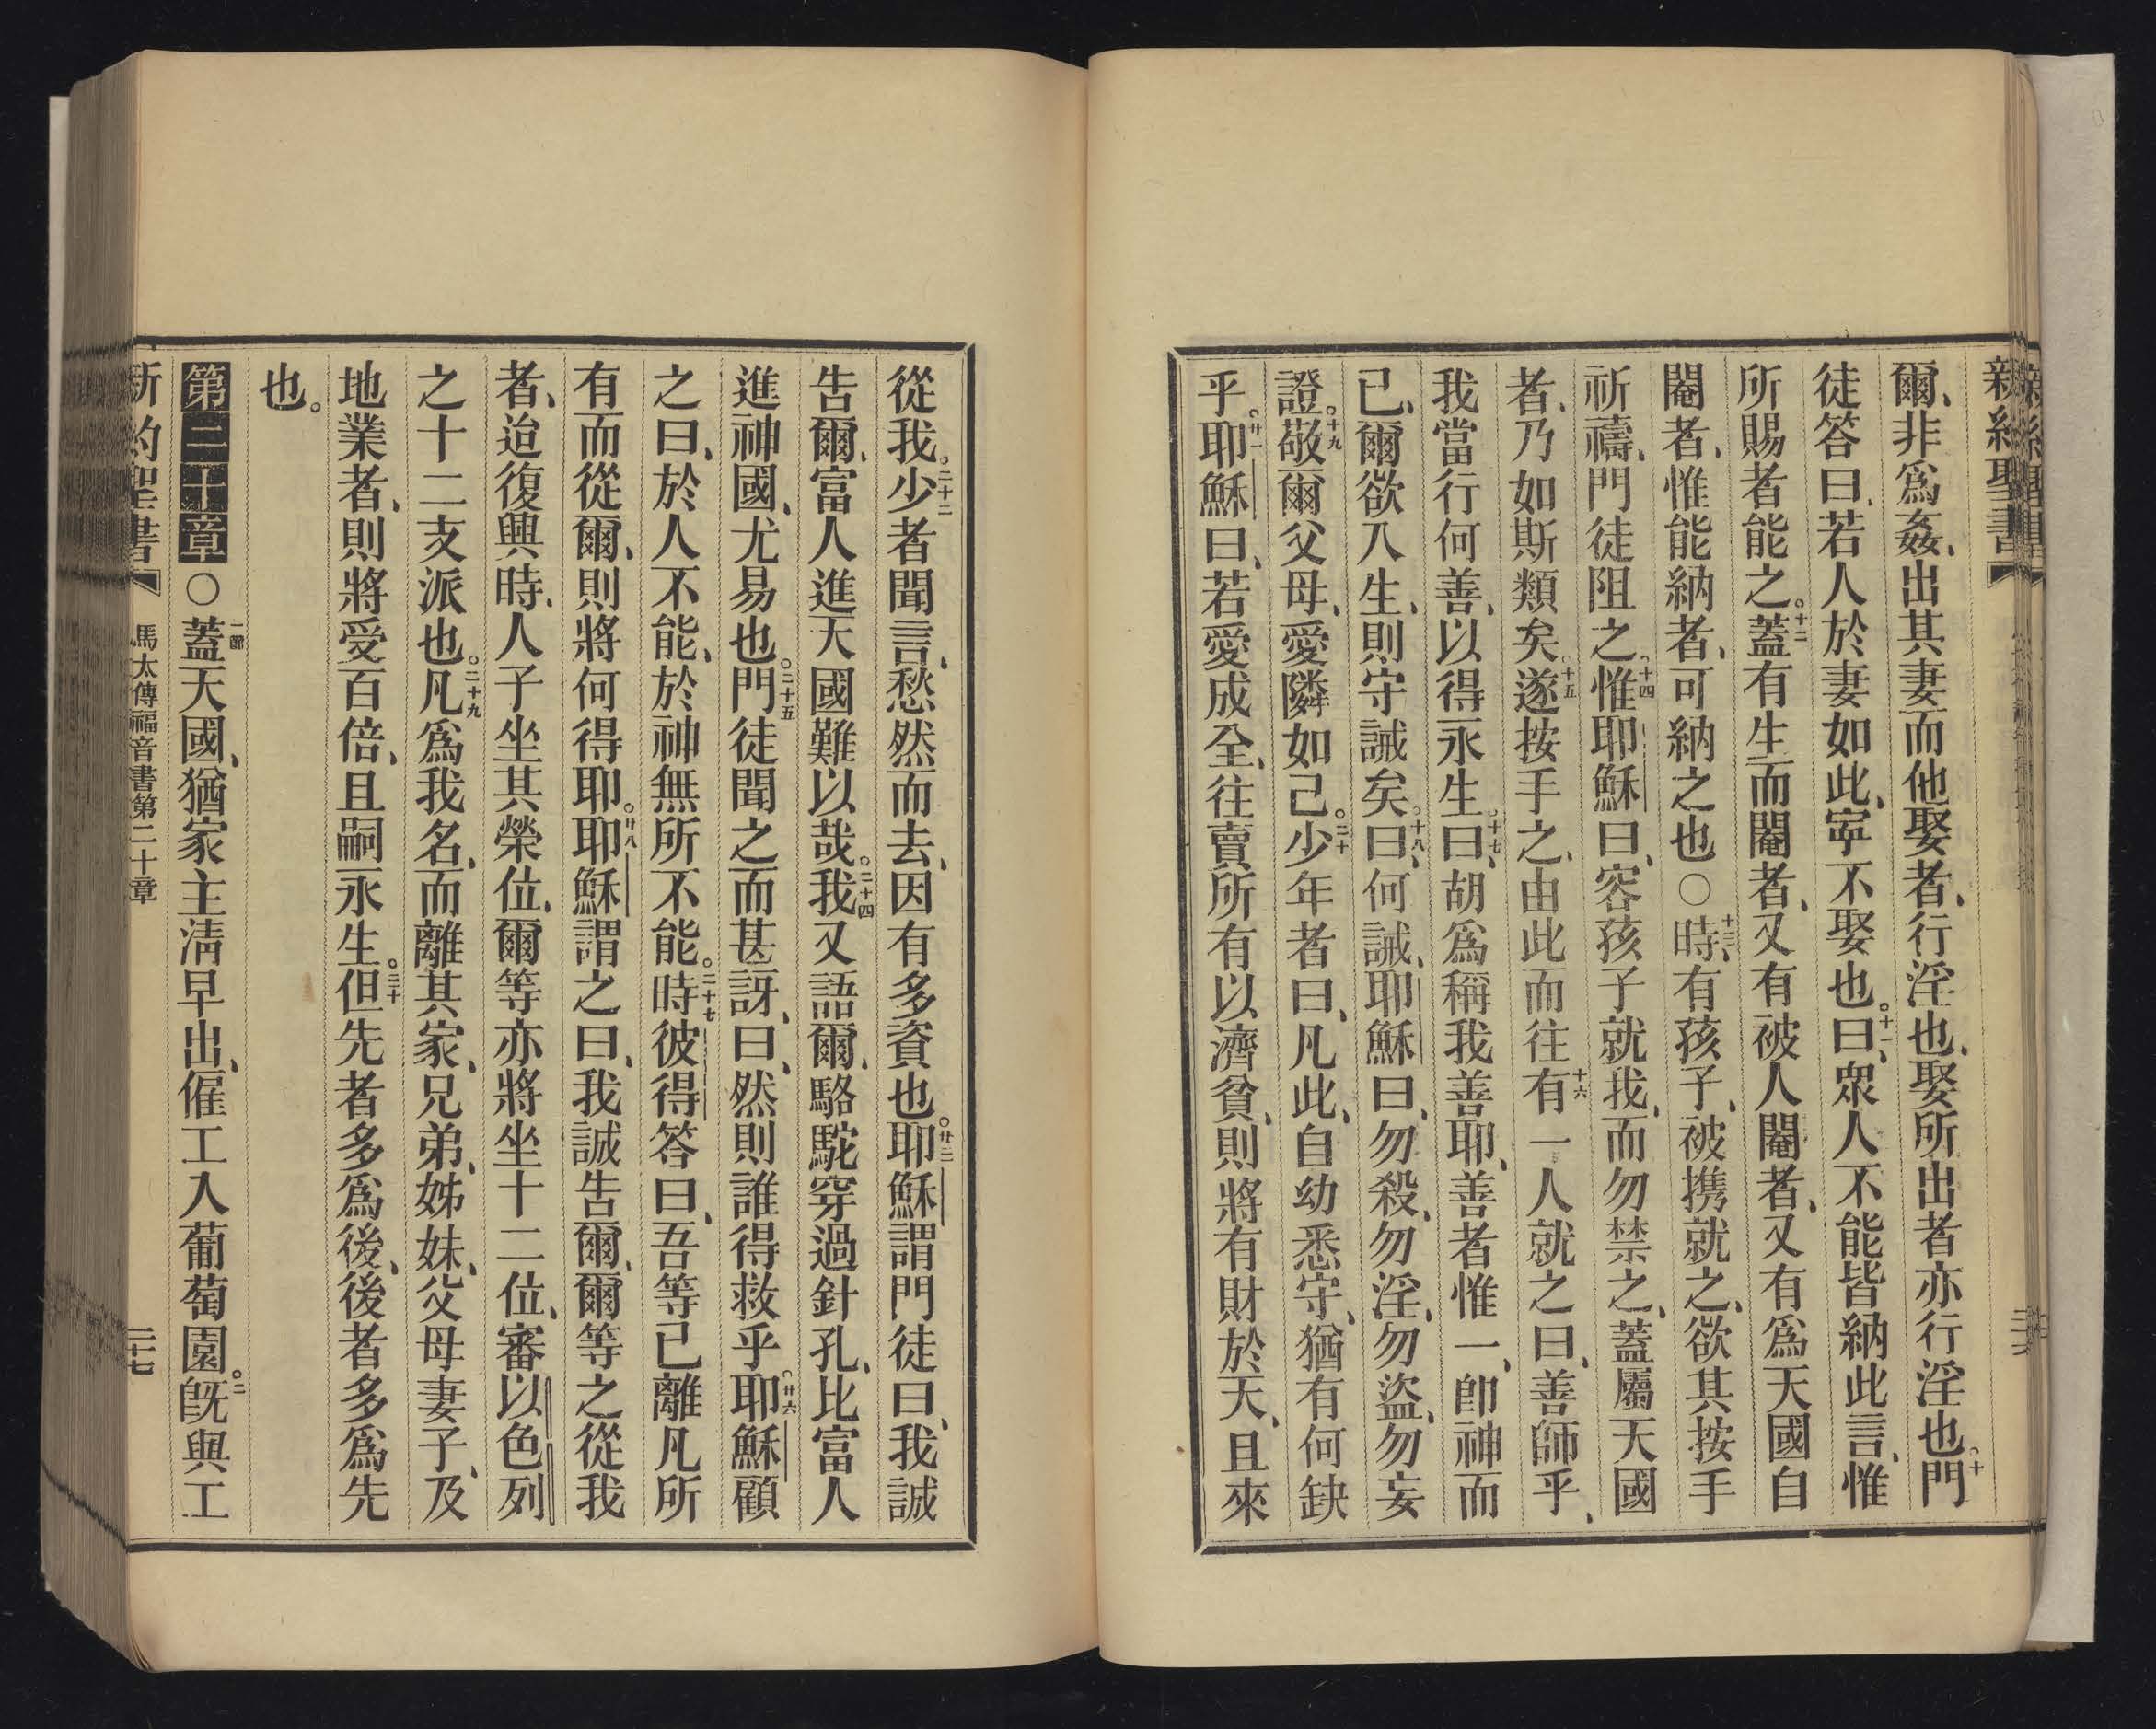 新約聖書
爾、非爲姦、出其妻而他娶者、行淫也、娶所出者亦行淫也。十門
徒答曰、若人於妻如此、寧不娶也。十一曰、衆人不能皆納此言、惟
所賜者能之。十二蓋有生而閹者、又有被人閹者、又有爲天國自
閹者、惟能納者、可納之也○十三時、有孩子、被携就之、欲其按手
祈禱、門徒阻之、十四惟耶穌曰、容孩子就我、而勿禁之、蓋屬天國
者、乃如斯類矣。十五遂按手之、由此而往十六有一人就之曰、善師乎、
我當行何善、以得永生。十七曰、胡爲稱我善耶、善者惟一、卽神而
已、爾欲入生、則守誡矣。十八曰、何誡、耶穌曰、勿殺、勿淫、勿盜、勿妄
證。十九敬爾父母、愛隣如己。二十少年者曰、凡此、自幼悉守、猶有何缺
乎。廿一耶穌曰、若愛成全、往賣所有以濟貧、則將有財於天、且來
從我。二十二少者聞言、愁然而去、因有多資也。廿三耶穌謂門徒曰、我誠
告爾、富人進天國難以哉。二十四我又語爾、駱駝穿過針孔、比富人
進神國、尤易也。二十五門徒聞之而甚訝、曰、然則誰得救乎。廿六耶穌顧
之曰、於人不能、於神無所不能。二十七時彼得答曰、吾等已離凡所
有而從爾、則將何得耶。廿八耶穌謂之曰、我誠告爾、爾等之從我
者、迨復興時、人子坐其榮位、爾等亦將坐十二位、審以色列
之十二支派也。二十九凡爲我名、而離其家、兄弟、姊妹、父母妻子、及
地業者、則將受百倍、且嗣永生。三十但先者多爲後、後者多爲先
也。
第二十章○一節蓋天國、猶家主淸早出、僱工入葡萄園。二旣與工
新約聖書 馬太傳福音書第二十章 二十七